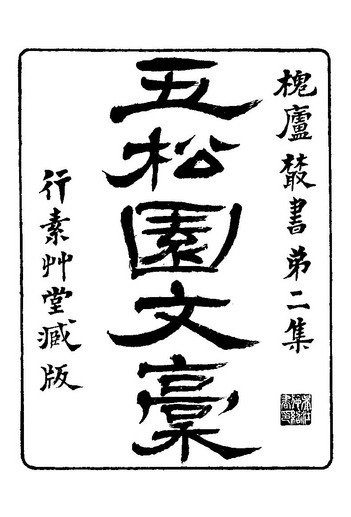 槐廬叢書第二集
五松園文稾
行素艸堂臧版